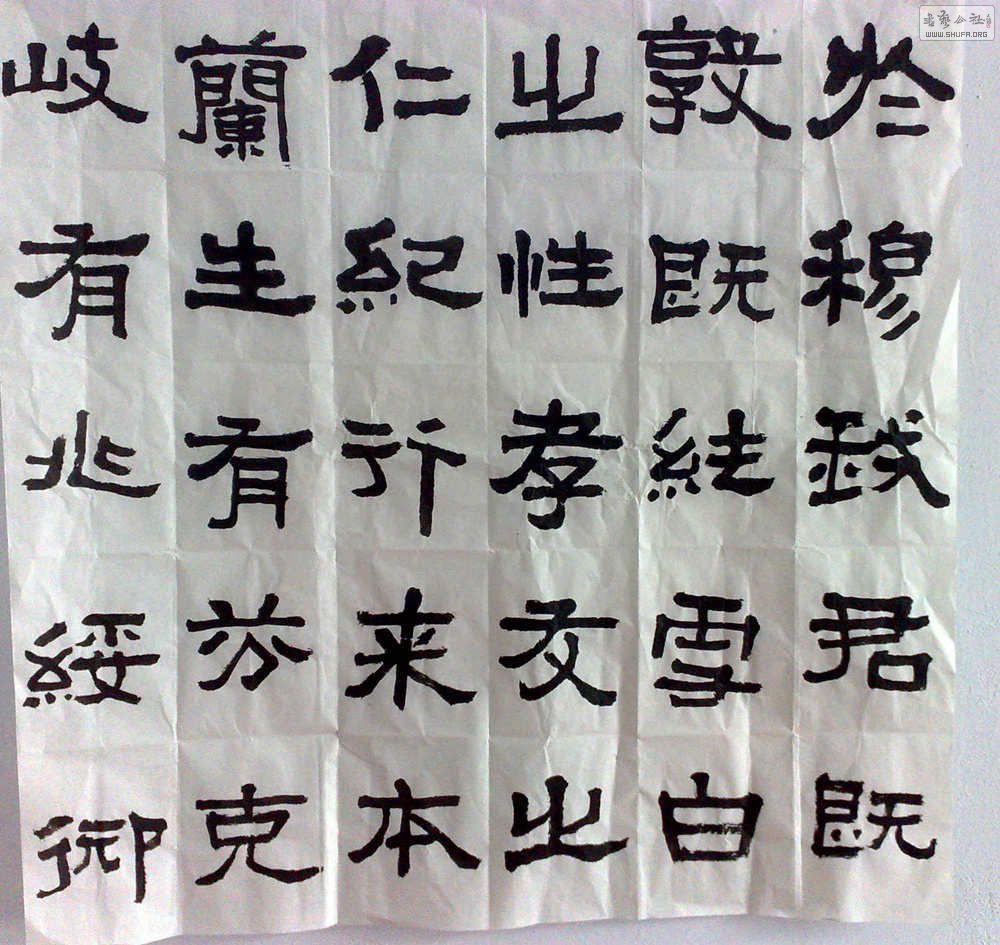 於穆我君既
敦既純雪白
之性孝友之
仁紀行来本
蘭生有芬克
岐有兆綏御
書藝公社
WWW.SHUFA.ORG